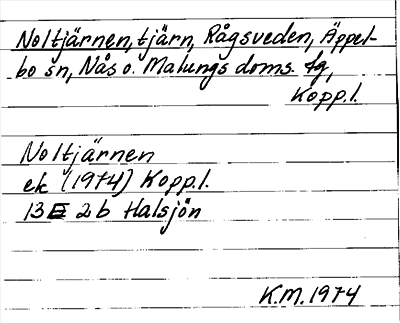 Noltjärnen, tjärn, Rågsveden, Äppel-
bo sn, Nås o. Malungs doms. tg,
Kopp.l.
Noltjärnen
ek (1974) Kopp.l.
13E 2b Halsjön
K.M. 1974